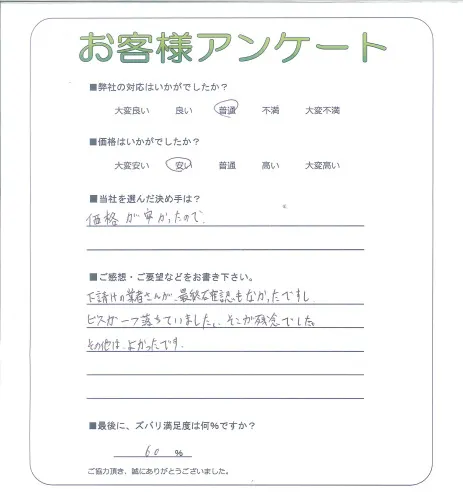 お客様アンケート
■弊社の対応はいかがでしたか？
大変良い 良い 普通 不満 大変不満
■価格はいかがでしたか？
大変安い 安い 普通 高い 大変高い
■当社を選んだ決め手は？
価格が安かったので、
■ご感想・ご要望などをお書き下さい。
下請けの業者さんが、最終確認もなかったですし
ビスが一つ落ちていました。そこが残念でした。
その他は、よかったです。
■最後に、ズバリ満足度は何％ですか？
60 ％
ご協力頂き、誠にありがとうございました。